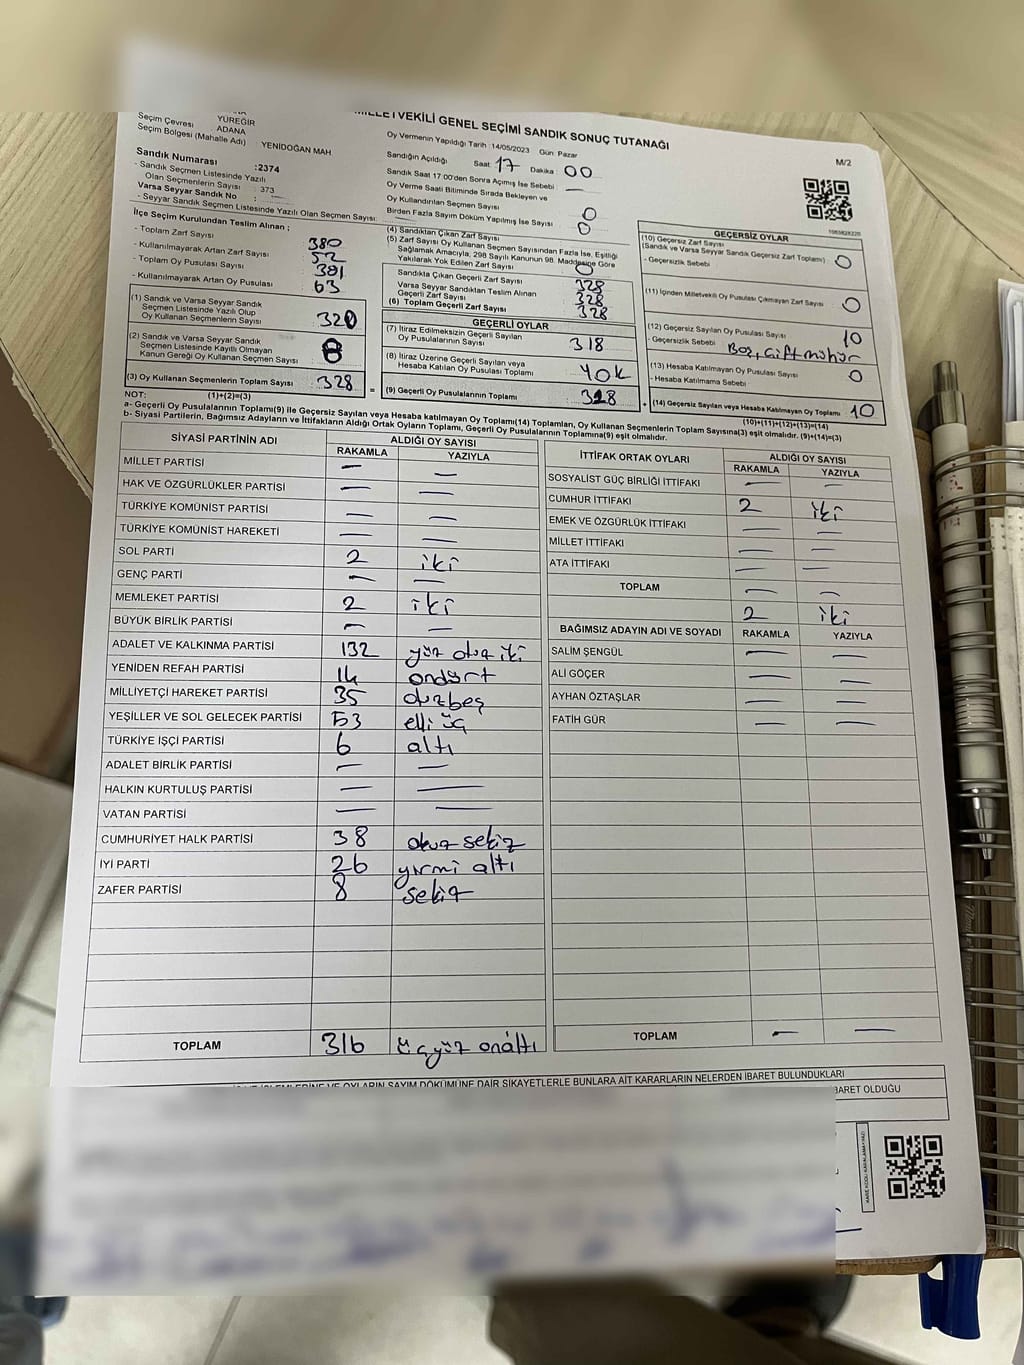 MİLLETVEKİLİ GENEL SEÇİMİ SANDIK SONUÇ TUTANAĞI
M/2
Seçim Çevresi YÜREĞİR
ADANA
Seçim Bölgesi (Mahalle Adı) YENİDOĞAN MAH.
Oy Vermenin Yapıldığı Tarih :14/05/2023 Gün: Pazar
Sandığın Açıldığı Saat: 17 Dakika : 00
Sandık Saat 17.00'den Sonra Açımış İse Sebebi —
Oy Verme Saati Bitiminde Sırada Bekleyen ve
Oy Kullandırılan Seçmen Sayısı 0
Birden Fazla Sayım Döküm Yapılmış İse Sayısı 0
Sandık Numarası :2374
- Sandık Seçmen Listesinde Yazılı
Olan Seçmenlerin Sayısı : 373
Varsa Seyyar Sandık No : —
- Seyyar Sandık Seçmen Listesinde Yazılı Olan Seçmen Sayısı: —
İlçe Seçim Kurulundan Teslim Alınan ;
- Toplam Zarf Sayısı 380
- Kullanılmayarak Artan Zarf Sayısı 52
- Toplam Oy Pusulası Sayısı 391
- Kullanılmayarak Artan Oy Pusulası 63
(1) Sandık ve Varsa Seyyar Sandık
Seçmen Listesinde Yazılı Olup
Oy Kullanan Seçmenlerin Sayısı 320
(2) Sandık ve Varsa Seyyar Sandık
Seçmen Listesinde Kayıtlı Olmayan
Kanun Gereği Oy Kullanan Seçmen Sayısı 8
(3) Oy Kullanan Seçmenlerin Toplam Sayısı 328 =
(4) Sandıktan Çıkan Zarf Sayısı
(5) Zarf Sayısı Oy Kullanan Seçmen Sayısından Fazla İse, Eşitliği
Sağlamak Amacıyla, 298 Sayılı Kanunun 98. Maddesine Göre
Yakılarak Yok Edilen Zarf Sayısı 0
Sandıkta Çıkan Geçerli Zarf Sayısı 328
Varsa Seyyar Sandıktan Teslim Alınan
Geçerli Zarf Sayısı 328
(6) Toplam Geçerli Zarf Sayısı 328
GEÇERLİ OYLAR
(7) İtiraz Edilmeksizin Geçerli Sayılan
Oy Pusulalarının Sayısı 318
(8) İtiraz Üzerine Geçerli Sayılan veya
Hesaba Katılan Oy Pusulası Toplamı YOK
(9) Geçerli Oy Pusulalarının Toplamı 318 +
1983828220
GEÇERSİZ OYLAR
(10) Geçersiz Zarf Sayısı
(Sandık ve Varsa Seyyar Sandık Geçersiz Zarf Toplamı) 0
- Geçersizlik Sebebi
(11) İçinden Milletvekili Oy Pusulası Çıkmayan Zarf Sayısı 0
(12) Geçersiz Sayılan Oy Pusulası Sayısı 10
- Geçersizlik Sebebi Boş, çift mühür
(13) Hesaba Katılmayan Oy Pusulası Sayısı 0
- Hesaba Katılmama Sebebi
(14) Geçersiz Sayılan veya Hesaba Katılmayan Oy Toplamı 10
NOT: (1)+(2)=(3) (10)+(11)+(12)+(13)=(14)
a- Geçerli Oy Pusulalarının Toplamı(9) ile Geçersiz Sayılan veya Hesaba katılmayan Oy Toplamı(14) Toplamları, Oy Kullanan Seçmenlerin Toplam Sayısına(3) eşit olmalıdır. (9)+(14)=(3)
b- Siyasi Partilerin, Bağımsız Adayların ve İttifakların Aldığı Ortak Oyların Toplamı, Geçerli Oy Pusulalarının Toplamına(9) eşit olmalıdır.
SİYASİ PARTİNİN ADI ALDIĞI OY SAYISI
RAKAMLA YAZIYLA
MİLLET PARTİSİ — —
HAK VE ÖZGÜRLÜKLER PARTİSİ — —
TÜRKİYE KOMÜNİST PARTİSİ — —
TÜRKİYE KOMÜNİST HAREKETİ — —
SOL PARTİ 2 iki
GENÇ PARTİ — —
MEMLEKET PARTİSİ 2 iki
BÜYÜK BİRLİK PARTİSİ — —
ADALET VE KALKINMA PARTİSİ 132 yüz otuz iki
YENİDEN REFAH PARTİSİ 14 ondört
MİLLİYETÇİ HAREKET PARTİSİ 35 otuzbeş
YEŞİLLER VE SOL GELECEK PARTİSİ 53 elli üç
TÜRKİYE İŞÇİ PARTİSİ 6 altı
ADALET BİRLİK PARTİSİ — —
HALKIN KURTULUŞ PARTİSİ — —
VATAN PARTİSİ — —
CUMHURİYET HALK PARTİSİ 38 otuz sekiz
İYİ PARTİ 26 yirmi altı
ZAFER PARTİSİ 8 sekiz
TOPLAM 316 üçyüz onaltı
İTTİFAK ORTAK OYLARI ALDIĞI OY SAYISI
RAKAMLA YAZIYLA
SOSYALİST GÜÇ BİRLİĞİ İTTİFAKI — —
CUMHUR İTTİFAKI 2 iki
EMEK VE ÖZGÜRLÜK İTTİFAKI — —
MİLLET İTTİFAKI — —
ATA İTTİFAKI — —
TOPLAM — —
2 iki
BAĞIMSIZ ADAYIN ADI VE SOYADI RAKAMLA YAZIYLA
SALİM ŞENGÜL — —
ALİ GÖÇER — —
AYHAN ÖZTAŞLAR — —
FATİH GÜR — —
TOPLAM — —
İŞLEMLERİNE VE OYLARIN SAYIM DÖKÜMÜNE DAİR ŞİKAYETLERLE BUNLARA AİT KARARLARIN NELERDEN İBARET BULUNDUKLARI
İBARET OLDUĞU